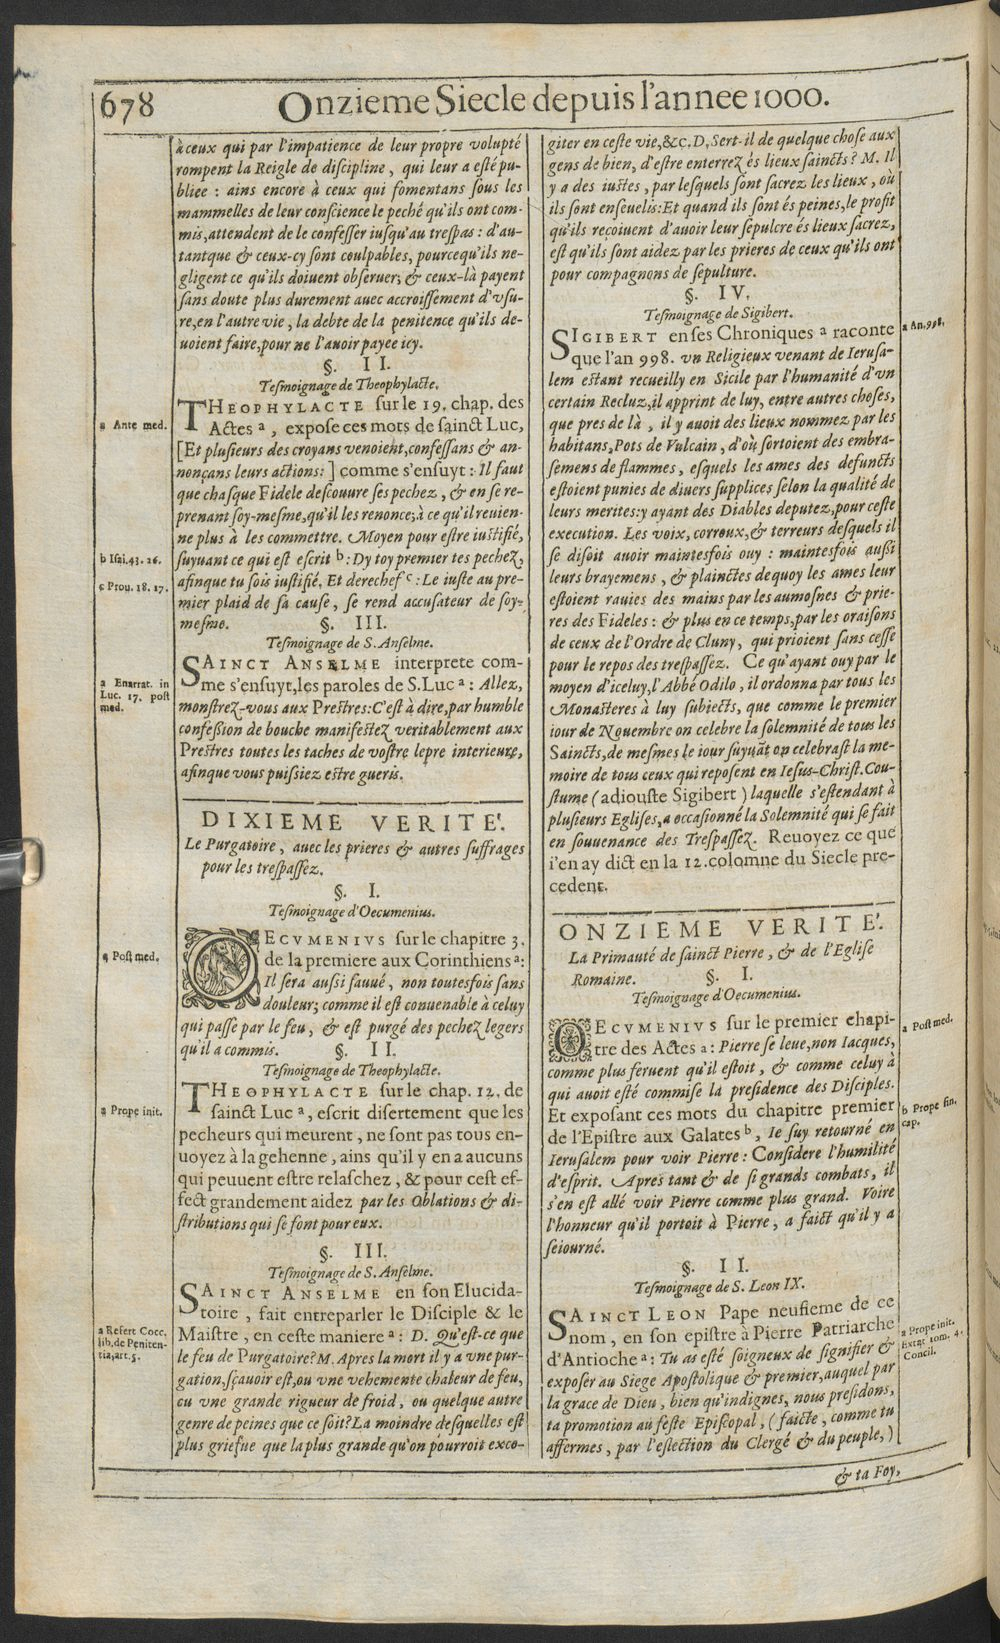 678
Onzieme Siecle depuis l'annee 1000.
à ceux qui par l'impatience de leur propre volupté
rompent la Reigle de discipline, qui leur a esté pu-
bliee : ains encore à ceux qui fomentans sous les
mammelles de leur conscience le peché qu'ils ont com-
mis, attendent de le confesser iusqu'au trespas : d'au-
tantque & ceux-cy sont coulpables, pourcequ'ils ne-
gligent ce qu'ils doiuent obseruer; & ceux-là payent
sans doute plus durement auec accroissement d'vsu-
re, en l'autre vie, la debte de la penitence qu'ils de-
uoient faire, pour ne l'auoir payee icy.
§. II.
Tesmoignage de Theophylacte.
THEOPHYLACTE sur le 19. chap. des
Actes a, expose ces mots de sainct Luc,
a Ante med.
[Et plusieurs des croyans venoient, confessans & an-
nonçans leurs actions:] comme s'ensuyt : Il faut
que chasque Fidele descouure ses pechez, & en se re-
prenant soy-mesme, qu'il les renonce; à ce qu'il reuien-
ne plus à les commettre. Moyen pour estre iustifié,
suyuant ce qui est escrit b : Dy toy premier tes pechez,
b Isai. 43. 26.
afinque tu sois iustifié. Et derechef c : Le iuste au pre-
c Prou. 18. 17.
mier plaid de sa cause, se rend accusateur de soy-
mesme.
§. III.
Tesmoignage de S. Anselme.
SAINCT ANSELME interprete com-
me s'ensuyt, les paroles de S. Luc a : Allez,
a Enarrat. in
Luc. 17. post
med.
monstrez-vous aux Prestres: C'est à dire, par humble
confession de bouche manifestez veritablement aux
Prestres toutes les taches de vostre lepre interieure,
afinque vous puissiez estre gueris.
DIXIEME VERITE'.
Le Purgatoire, auec les prieres & autres suffrages
pour les trespassez.
§. I.
Tesmoignage d'Oecumenius.
OECVMENIVS sur le chapitre 3.
de la premiere aux Corinthiens a:
a Post med.
Il sera aussi sauué, non toutesfois sans
douleur; comme il est conuenable à celuy
qui passe par le feu, & est purgé des pechez legers
qu'il a commis.
§. II.
Tesmoignage de Theophylacte.
THEOPHYLACTE sur le chap. 12. de
sainct Luc a, escrit disertement que les
a Prope init.
pecheurs qui meurent, ne sont pas tous en-
uoyez à la gehenne, ains qu'il y en a aucuns
qui peuuent estre relaschez, & pour cest ef-
fect grandement aidez par les Oblations & di-
stributions qui se font pour eux.
§. III.
Tesmoignage de S. Anselme.
SAINCT ANSELME en son Elucida-
toire, fait entreparler le Disciple & le
Maistre, en ceste maniere a : D. Qu'est-ce que
a Refert Cocc.
lib. de Peniten-
tia, art. 5.
le feu de Purgatoire? M. Apres la mort il y a vne pur-
gation, sçauoir est, ou vne vehemente chaleur de feu,
ou vne grande rigueur de froid, ou quelque autre
genre de peines que ce soit? La moindre desquelles est
plus griefue que la plus grande qu'on pourroit exco-
giter en ceste vie, &c. D, Sert-il de quelque chose aux
gens de bien, d'estre enterrez és lieux saincts? M. Il
y a des iustes, par lesquels sont sacrez les lieux, où
ils sont enseuelis: Et quand ils sont és peines, le profit
qu'ils reçoiuent d'auoir leur sepulcre és lieux sacrez,
est qu'ils sont aidez par les prieres de ceux qu'ils ont
pour compagnons de sepulture.
§. IV.
Tesmoignage de Sigibert.
SIGIBERT en ses Chroniques a raconte
a An. 998.
que l'an 998. vn Religieux venant de Ierusa-
lem estant recueilly en Sicile par l'humanité d'vn
certain Recluz, il apprint de luy, entre autres choses,
que pres de là, il y auoit des lieux nommez par les
habitans, Pots de Vulcain, d'où sortoient des embra-
semens de flammes, esquels les ames des defuncts
estoient punies de diuers supplices selon la qualité de
leurs merites: y ayant des Diables deputez, pour ceste
execution. Les voix, corroux, & terreurs desquels il
se disoit auoir maintesfois ouy : maintesfois aussi
leurs brayemens, & plainctes dequoy les ames leur
estoient rauies des mains par les aumosnes & prie-
res des Fideles : & plus en ce temps, par les oraisons
de ceux de l'Ordre de Cluny, qui prioient sans cesse
pour le repos des trespassez. Ce qu'ayant ouy par le
moyen d'iceluy, l'Abbé Odilo, il ordonna par tous les
Monasteres à luy subiects, que comme le premier
iour de Nouembre on celebre la solemnité de tous les
Saincts, de mesmes le iour suyuāt on celebrast la me-
moire de tous ceux qui reposent en Iesus-Christ. Cou-
stume (adiouste Sigibert) laquelle s'estendant à
plusieurs Eglises, a occasionné la Solemnité qui se fait
en souuenance des Trespassez. Reuoyez ce que
i'en ay dict en la 12. colomne du Siecle pre-
cedent.
ONZIEME VERITE'.
La Primauté de sainct Pierre, & de l'Eglise
Romaine.
§. I.
Tesmoignage d'Oecumenius.
OECVMENIVS sur le premier chapi-
tre des Actes a : Pierre se leue, non Iacques,
a Post med.
comme plus feruent qu'il estoit, & comme celuy à
qui auoit esté commise la presidence des Disciples.
Et exposant ces mots du chapitre premier
de l'Epistre aux Galates b, Ie suy retourné en
b Prope fin.
cap.
Ierusalem pour voir Pierre : Considere l'humilité
d'esprit. Apres tant & de si grands combats, il
s'en est allé voir Pierre comme plus grand. Voire
l'honneur qu'il portoit à Pierre, a faict qu'il y a
seiourné.
§. II.
Tesmoignage de S. Leon IX.
SAINCT LEON Pape neufieme de ce
nom, en son epistre à Pierre Patriarche
d'Antioche a : Tu as esté soigneux de signifier &
a Prope init.
Extat tom. 4.
Concil.
exposer au Siege Apostolique & premier, auquel par
la grace de Dieu, bien qu'indignes, nous presidons,
ta promotion au feste Episcopal, (faicte, comme tu
affermes, par l'eslection du Clergé & du peuple,)
& ta Foy,